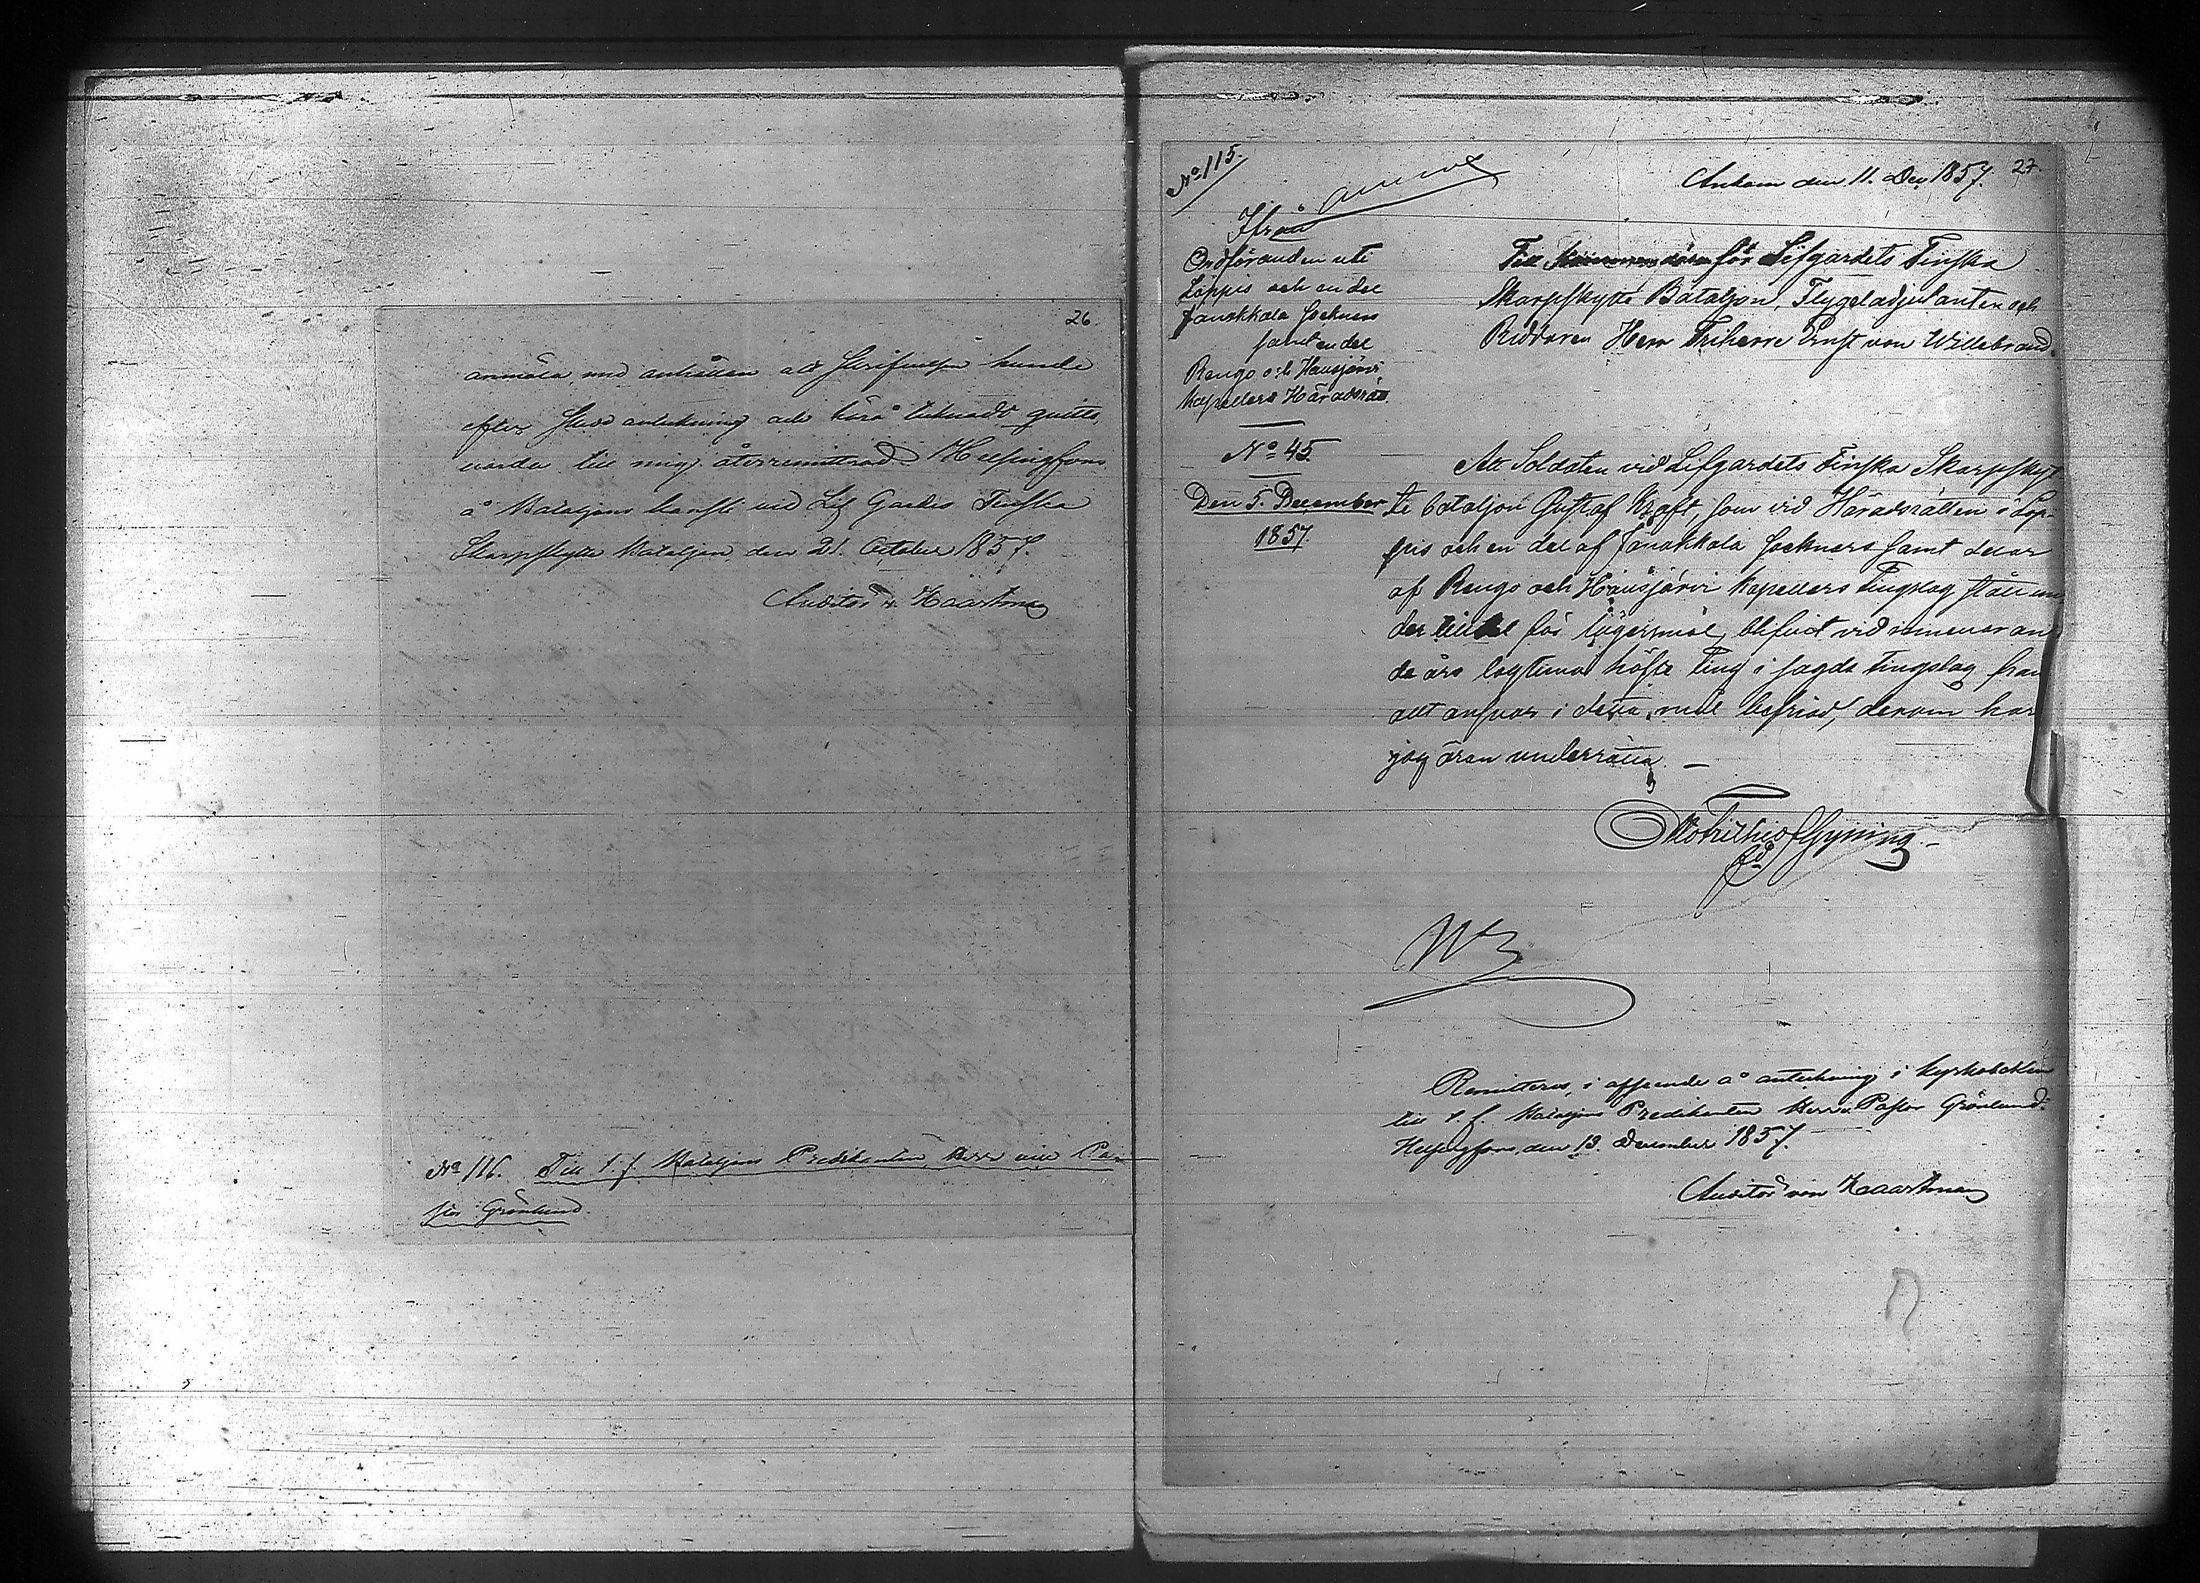 26.
anmäla, med anhållan att skrifvelsen hände
efter skedd anteckning och härå tecknadt
varda till mig återremitterad. Helsingfors
å Bataljons kansli vid Lif Gardes Finska
Skarpskytte Bataljon, den 21. October 1857.
Auditör v. Haartman
No 116. Till t. f. Bataljons Predikanten, Herr vice Pa-
stor Grönlund.
27.
No 115.
Ankom den 11. Dec 1857.
Ifrån
Ordföranden uti
Loppis och en del
Janakkala Socknars
samt en del
Rengo och Hausjärvi
kapellers Häradsrätt.
No 45.
Den 5. December
1857.
Till Kommendören för Lifgardets Finska
Skarpskytte Bataljon, Flygeladjutanten och
Riddaren Herr Friherre Ernst von Willebrand.
Att Soldaten vid Lifgardets Finska Skarpskyt-
te bataljon Gustaf Kraft, som vid Häradsrätten i Lop-
pis och en del af Janakkala Socknars samt delar
af Rengo och Hausjärvi kapellers Tingslag stått un-
der tilltal för lägersmål, blifvit vid innevaran-
de års lagtima höste Ting i sagda tingslag från
allt ansvar i detta mål befriad, derom har
jag äran underrätta. —
Remitteras, i afseende å anteckning i kyrkoboken
till t. f. Bataljons Predikanten Herr v. Pastor Grönlund.
Helsingfors, den 13. December 1857.
Auditör von Haartman